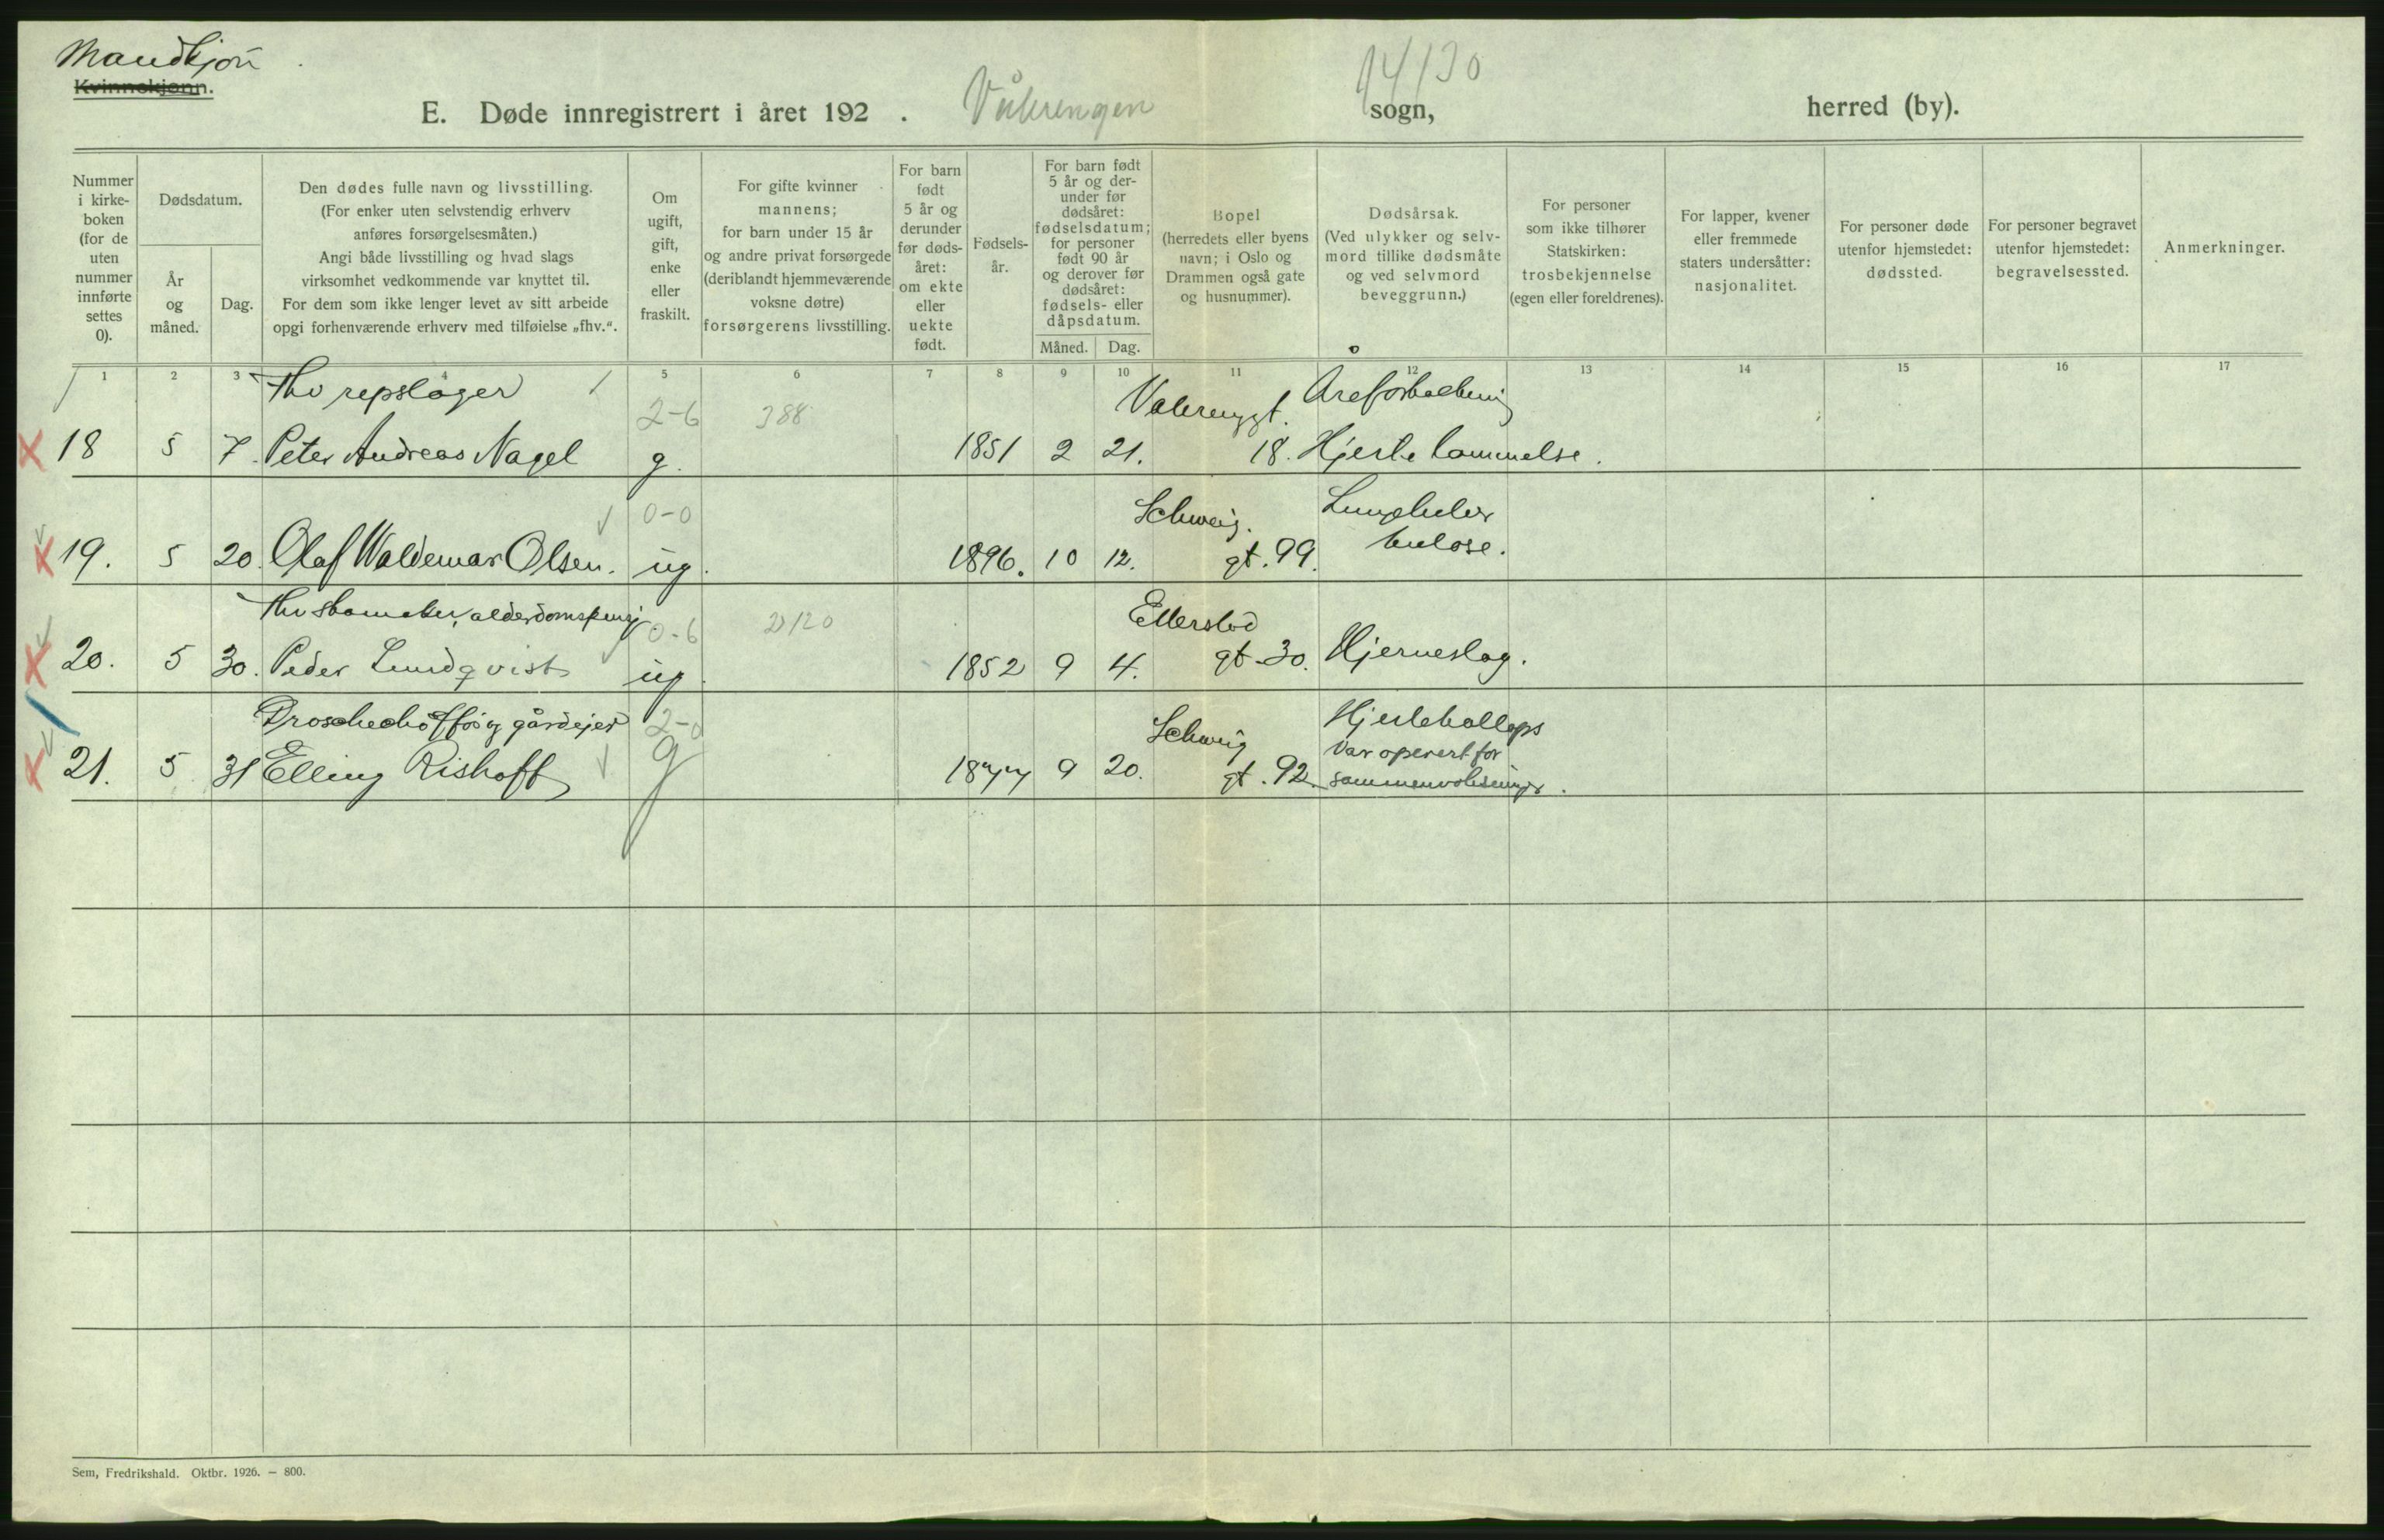 Mandkjøn
Kvinnekjønn.
14/30
E. Døde innregistrert i året 192 . Vålerengen sogn, herred (by).
Nummer i kirke-boken (for de uten nummer innførte settes 0).
Dødsdatum.
År og måned.
Dag.
Den dødes fulle navn og livsstilling.
(For enker uten selvstendig erhverv
anføres forsørgelsesmåten.)
Angi både livsstilling og hvad slags
virksomhet vedkommende var knyttet til.
For dem som ikke lenger levet av sitt arbeide
opgi forhenværende erhverv med tilføielse „fhv.“.
Om ugift, gift, enke eller fraskilt.
For gifte kvinner
mannens;
for barn under 15 år
og andre privat forsørgede
(deriblandt hjemmeværende
voksne døtre)
forsørgerens livsstilling.
For barn født 5 år og derunder før døds-året: om ekte eller uekte født.
Fødsels-år.
For barn født
5 år og der-
under før
dødsåret:
fødselsdatum;
for personer
født 90 år
og derover før
dødsåret:
fødsels- eller
dåpsdatum.
Måned. Dag.
Bopel
(herredets eller byens
navn; i Oslo og
Drammen også gate
og husnummer).
Dødsårsak.
(Ved ulykker og selv-
mord tillike dødsmåte
og ved selvmord
beveggrunn.)
For personer
som ikke tilhører
Statskirken:
trosbekjennelse
(egen eller foreldrenes).
For lapper, kvener
eller fremmede
staters undersåtter:
nasjonalitet.
For personer døde
utenfor hjemstedet:
dødssted.
For personer begravet
utenfor hjemstedet:
begravelsessted.
Anmerkninger.
1 2 3 4 5 6 7 8 9 10 11 12 13 14 15 16 17
Fhv repslager 2-6 388 Valerenggt. Åreforkalkning
18 5 7. Peter Andreas Nagel g. 1851 2 21. 18. Hjertelammelse.
0-0 Schweig. Lungetuber
19. 5 20. Olaf Waldemar Olsen. ug. 1896. 10 12. gt. 99. kulose.
Fhv skomaker, alderdomspensj 0-6 2120 Etterstad
20. 5 30. Peder Lundqvist ug. 1852 9 4. gt. 30. Hjerneslag.
Droschechoffør og gårdejer 2-0 Schweig Hjertekollaps
Var operert for
21. 5 31 Elling Rishoff g 1877 9 20. gt. 92. sammenvoksninger.
Sem, Fredrikshald. Oktbr. 1926. — 800.